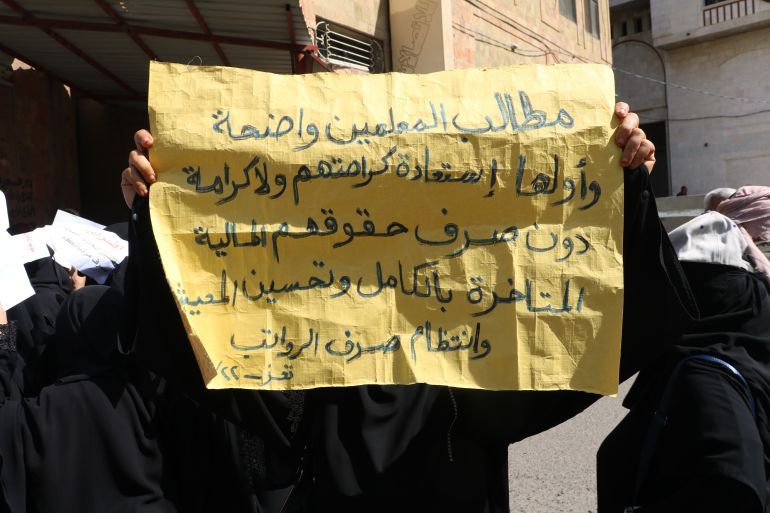 مطالب المعلمين واضحة
وأولها إستعادة كرامتهم ولا كرامة
دون صرف حقوقهم المالية
المتاخرة بالكامل وتحسين المعيشة
وانتظام صرف الرواتب
تعز-٢٢/